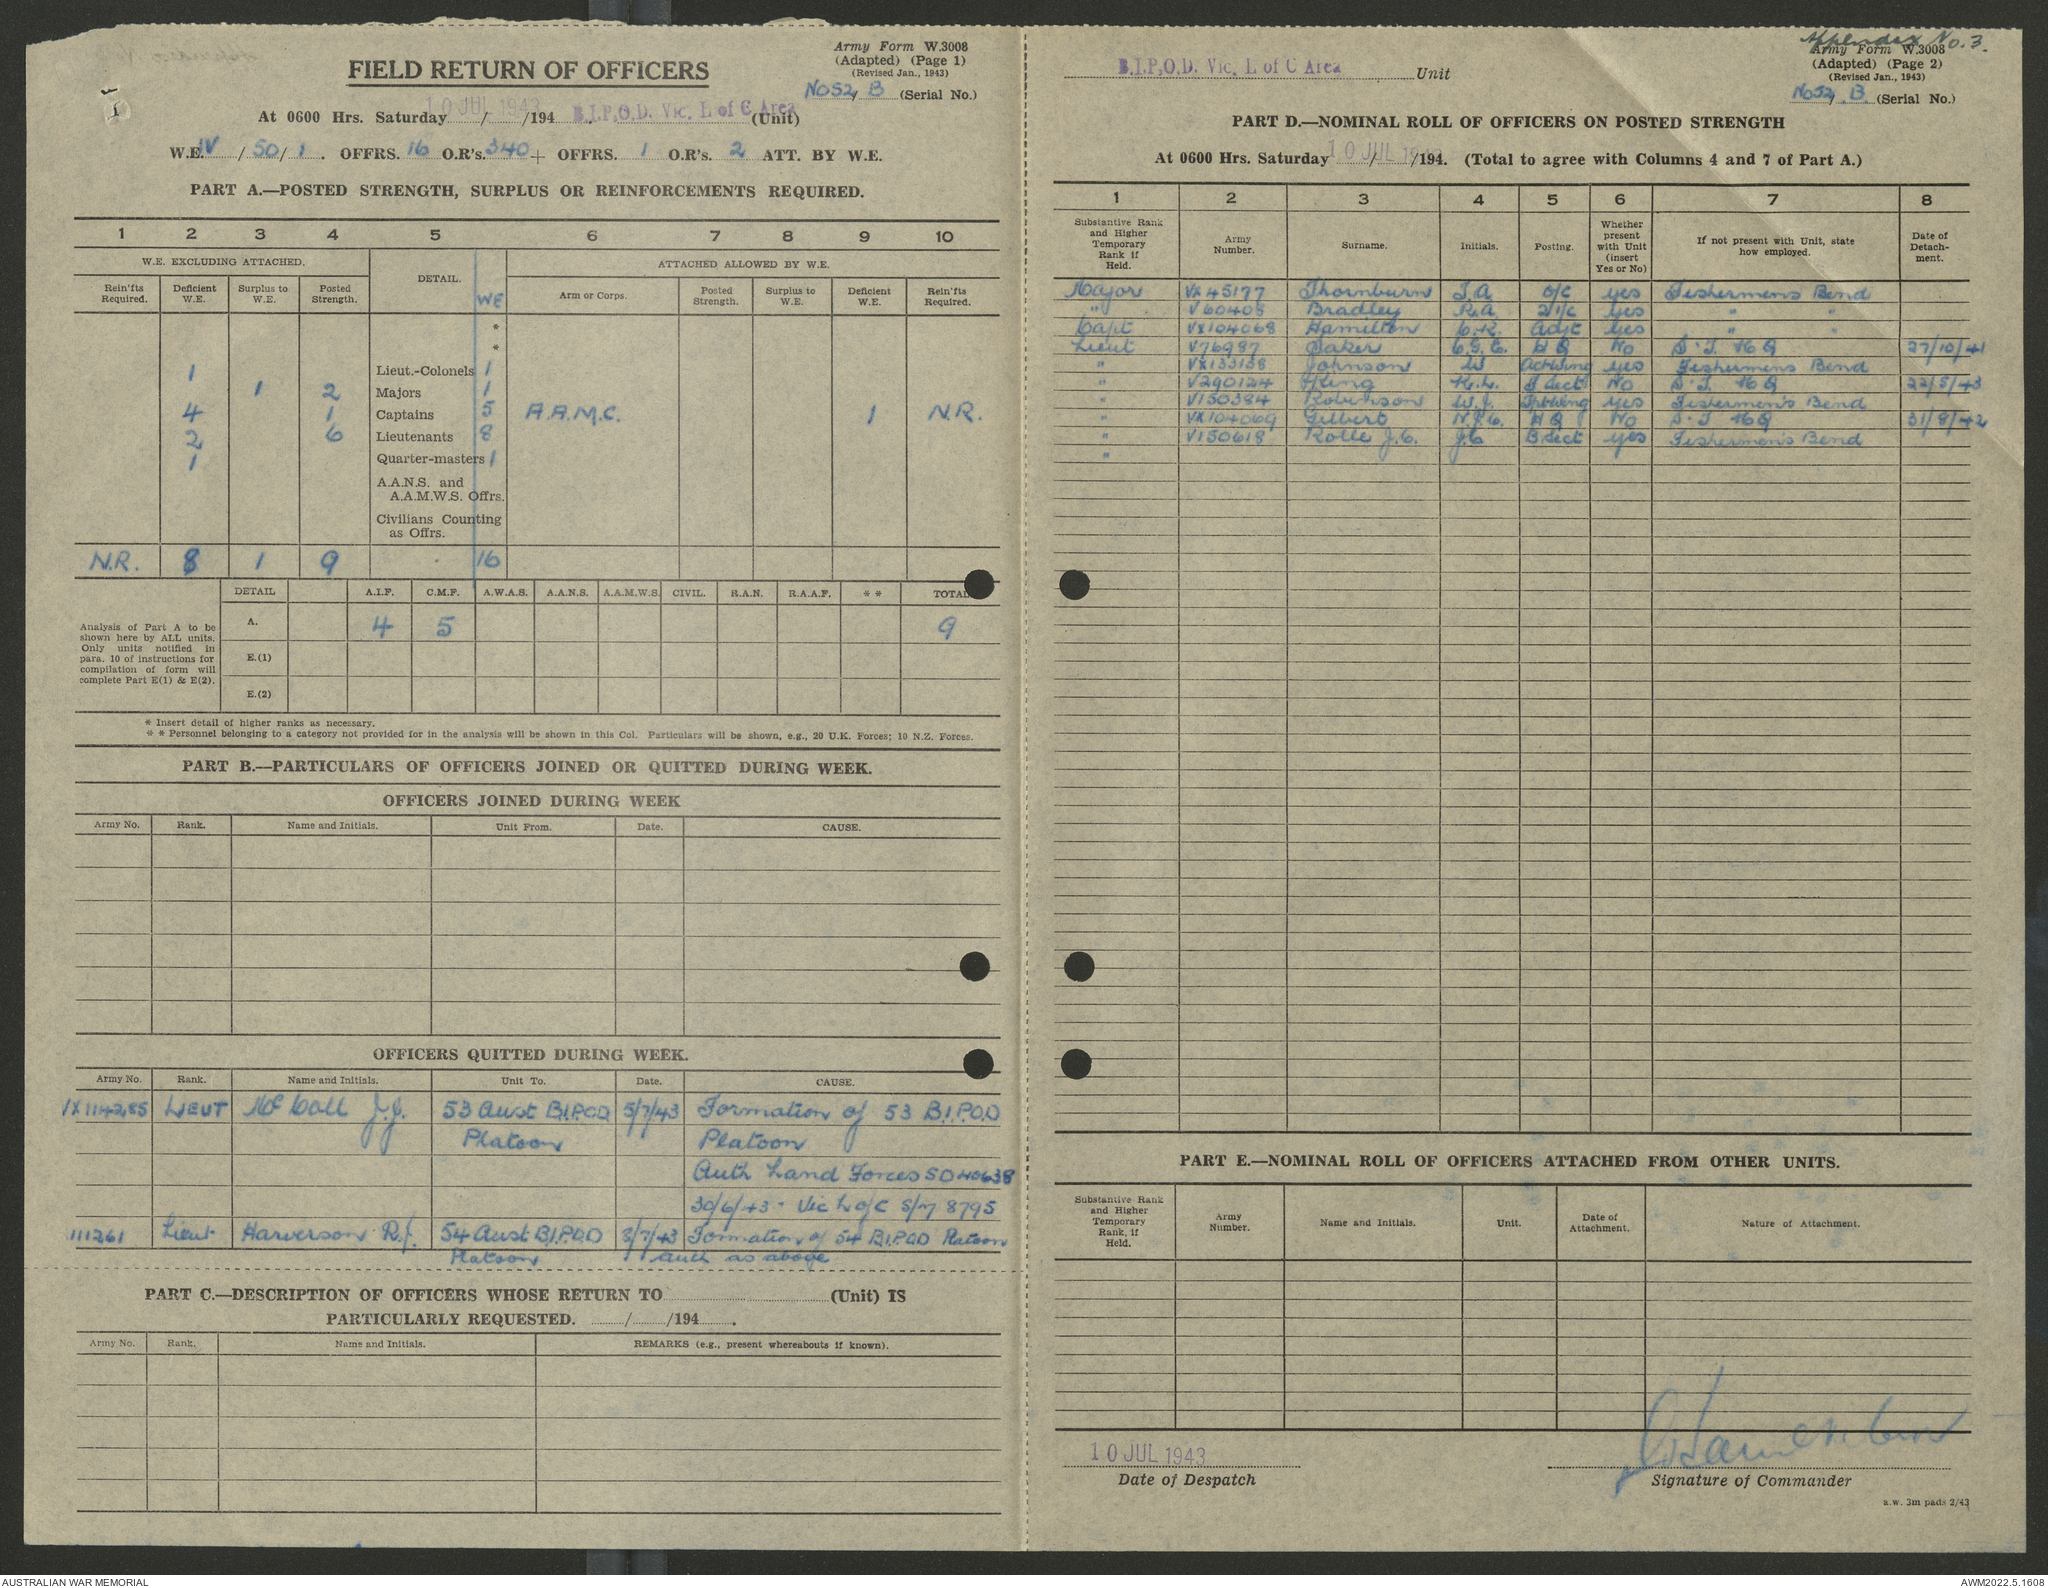 Army Form W.3008
(Adapted) (Page 1)
(Revised Jan., 1943)
No 52, B (Serial No.)
FIELD RETURN OF OFFICERS
At 0600 Hrs. Saturday 10 JUL 1943 / /194 . B.I.P.O.D. Vic. L of C Area (Unit)
W.E. IV / 50 / 1 . OFFRS. 16 O.R's. 340 + OFFRS. 1 O.R's. 2 ATT. BY W.E.
PART A.—POSTED STRENGTH, SURPLUS OR REINFORCEMENTS REQUIRED.
1 2 3 4 5 6 7 8 9 10
W.E. EXCLUDING ATTACHED. DETAIL. WE ATTACHED ALLOWED BY W.E.
Rein'fts Required. Deficient W.E. Surplus to W.E. Posted Strength. Arm or Corps. Posted Strength. Surplus to W.E. Deficient W.E. Rein'fts Required.
*
*
1 Lieut.-Colonels 1
1 2 Majors 1
4 1 Captains 5 A.A.M.C. 1 N.R.
2 6 Lieutenants 8
1 Quarter-masters 1
A.A.N.S. and
A.A.M.W.S. Offrs.
Civilians Counting
as Offrs.
N.R. 8 1 9 16
DETAIL A.I.F. C.M.F. A.W.A.S. A.A.N.S. A.A.M.W.S. CIVIL. R.A.N. R.A.A.F. * * TOTAL
Analysis of Part A to be
shown here by ALL units.
Only units notified in
para. 10 of instructions for
compilation of form will
complete Part E(1) & E(2).
A. 4 5 9
E.(1)
E.(2)
* Insert detail of higher ranks as necessary.
* * Personnel belonging to a category not provided for in the analysis will be shown in this Col. Particulars will be shown, e.g., 20 U.K. Forces; 10 N.Z. Forces.
PART B.—PARTICULARS OF OFFICERS JOINED OR QUITTED DURING WEEK.
OFFICERS JOINED DURING WEEK
Army No. Rank. Name and Initials. Unit From. Date. CAUSE.
OFFICERS QUITTED DURING WEEK.
Army No. Rank. Name and Initials. Unit To. Date. CAUSE.
VX114285 LIEUT McCall J.J. 53 Aust B.I.P.O.D 5/7/43 Formation of 53 B.I.P.O.D
Platoon Platoon
Auth Land Forces SD 40638
30/6/43 - Vic L of C S/M 8795
111261 Lieut Harverson R.J. 54 Aust B.I.P.O.D 8/7/43 Formation of 54 B.I.P.O.D Platoon
Platoon Auth as above
PART C.—DESCRIPTION OF OFFICERS WHOSE RETURN TO (Unit) IS
PARTICULARLY REQUESTED. / /194 .
Army No. Rank. Name and Initials. REMARKS (e.g., present whereabouts if known).
Appendix No. 3.
Army Form W.3008
(Adapted) (Page 2)
(Revised Jan., 1943)
No 52, B (Serial No.)
B.I.P.O.D. Vic. L of C Area Unit
PART D.—NOMINAL ROLL OF OFFICERS ON POSTED STRENGTH
At 0600 Hrs. Saturday 10 JUL 1943 / /194 . (Total to agree with Columns 4 and 7 of Part A.)
1 2 3 4 5 6 7 8
Substantive Rank and Higher Temporary Rank if Held. Army Number. Surname. Initials. Posting. Whether present with Unit (insert Yes or No) If not present with Unit, state how employed. Date of Detachment.
Major VX45177 Thornburn J.A O/C yes Fishermens Bend
" V60408 Bradley R.A. 2 i/c yes " "
Capt VX104068 Hamilton C.K. Adjt yes " "
Lieut V76987 Baker C.G.E. HQ No S.T. HQ 27/10/41
" VX133158 Johnson W yes Fishermens Bend
" V290124 King K.L. Sect No S.T. HQ 22/5/43
" V150384 Robinson W.J. yes Fishermen's Bend
" VX104069 Gilbert N.J.C. HQ No S.T HQ 31/8/42
" V150618 Rolle J.C. J.C B Sect yes Fishermen's Bend
"
PART E.—NOMINAL ROLL OF OFFICERS ATTACHED FROM OTHER UNITS.
Substantive Rank and Higher Temporary Rank, if Held. Army Number. Name and Initials. Unit. Date of Attachment. Nature of Attachment.
10 JUL 1943
Date of Despatch Signature of Commander
a.w. 3m pads 2/43
AUSTRALIAN WAR MEMORIAL AWM2022.5.1608